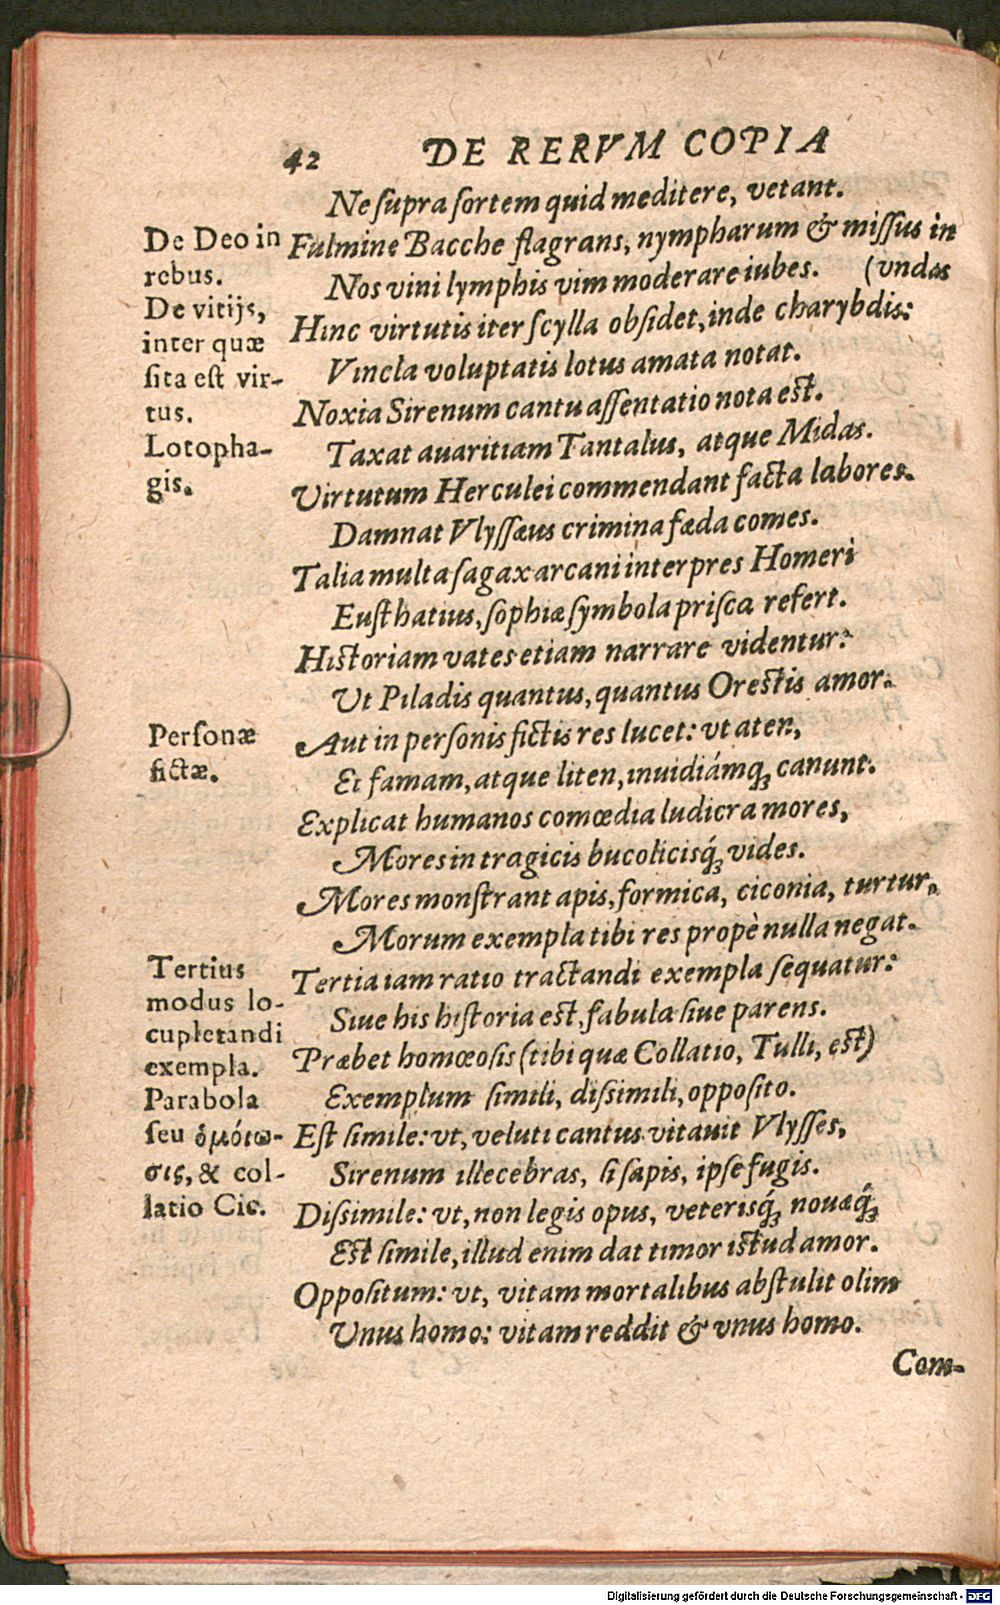 42 DE RERVM COPIA
Ne ſupra ſortem quid meditere, vetant.
De Deo in
rebus.
De vitijs,
inter quæ
ſita eſt vir-
tus.
Lotopha-
gis.
Fulmine Bacche flagrans, nympharum & miſſus in
Nos vini lymphis vim moderare iubes. (vndas
Hinc virtutis iter ſcylla obſidet, inde charybdis:
Vincla voluptatis lotus amata notat.
Noxia Sirenum cantu aſſentatio nota eſt.
Taxat auaritiam Tantalus, atque Midas.
Virtutum Herculei commendant facta labores.
Damnat Vlyſſæus crimina fæda comes.
Talia multa ſagax arcani interpres Homeri
Euſthatius, ſophiæ ſymbola priſca refert.
Hiſtoriam vates etiam narrare videntur:
Ut Piladis quantus, quantus Oreſtis amor.
Perſonæ
fictæ.
Aut in perſonis fictis res lucet: vt ater,
Et famam, atque liten, inuidiámq́ꝫ canunt.
Explicat humanos comœdia ludicra mores,
Mores in tragicis bucolicisq́ꝫ vides.
Mores monſtrant apis, formica, ciconia, turtur,
Morum exempla tibi res propè nulla negat.
Tertius
modus lo-
cupletandi
exempla.
Parabola
ſeu ὁμόιω-
σις, & col-
latio Cic.
Tertia iam ratio tractandi exempla ſequatur:
Siue his hiſtoria eſt, fabula ſiue parens.
Præbet homœoſis (tibi quæ Collatio, Tulli, eſt)
Exemplum ſimili, diſsimili, oppoſito.
Eſt ſimile: vt, veluti cantus vitauit Vlyſſes,
Sirenum illecebras, ſi ſapis, ipſe fugis.
Diſsimile: vt, non legis opus, veterisq́ꝫ nouæq́ꝫ
Eſt ſimile, illud enim dat timor iſtud amor.
Oppoſitum: vt, vitam mortalibus abſtulit olim
Unus homo: vitam reddit & vnus homo.
Com-
Digitalisierung gefördert durch die Deutsche Forschungsgemeinschaft - DFG